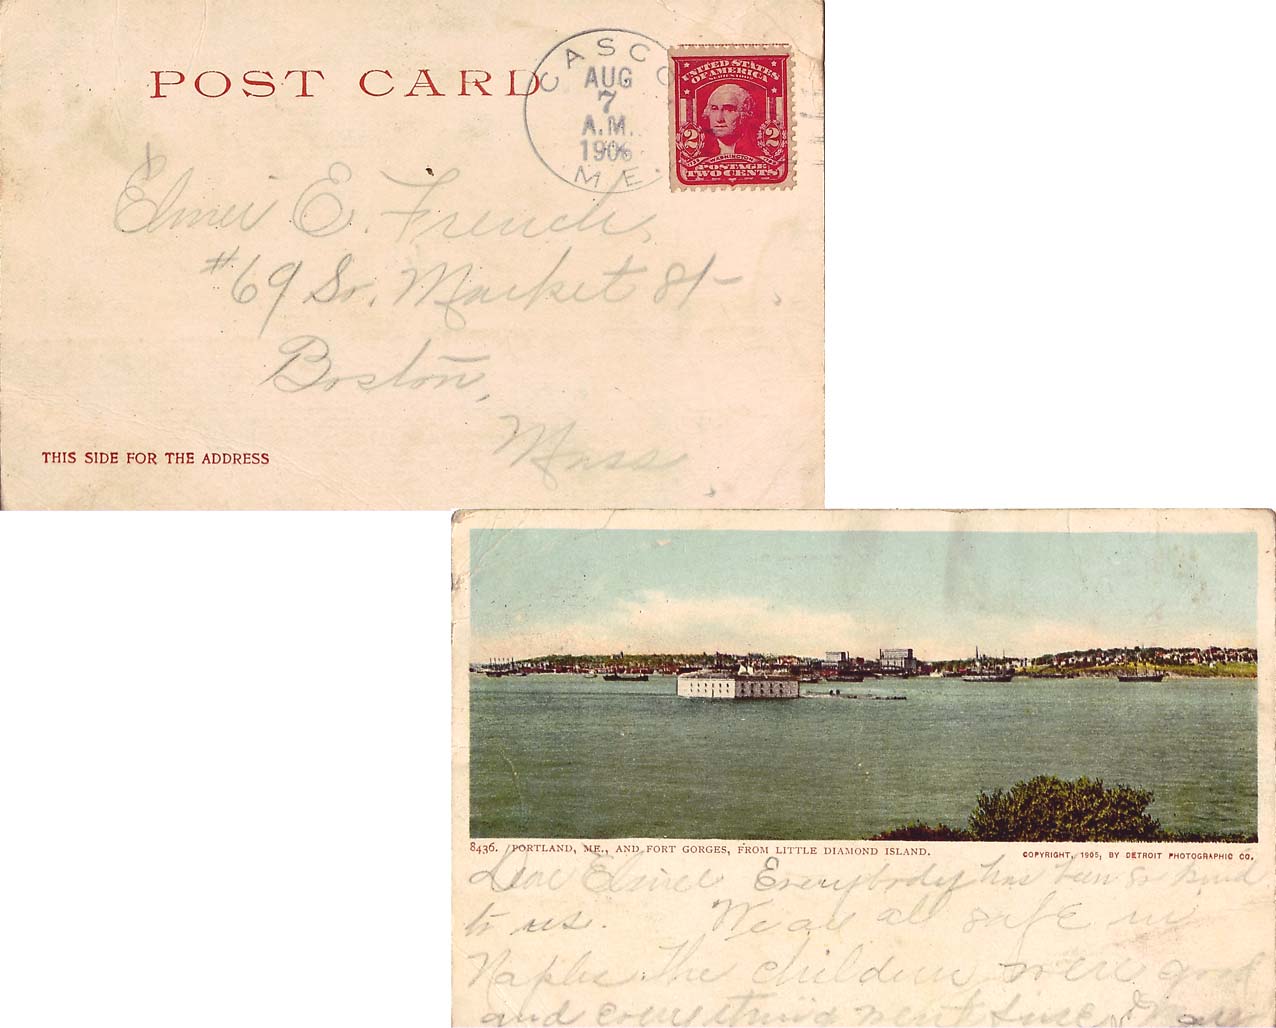 POST CARD
CASCO
AUG
7
A.M.
1906
ME.
UNITED STATES
OF AMERICA
2 2
WASHINGTON
POSTAGE
TWO CENTS
Elmer E. French,
#69 So. Market St
Boston,
Mass
THIS SIDE FOR THE ADDRESS
8436. PORTLAND, ME., AND FORT GORGES, FROM LITTLE DIAMOND ISLAND.
COPYRIGHT, 1905, BY DETROIT PHOTOGRAPHIC CO.
Dear Elmer Everybody has been so kind
to us. We are all safe in
Naples. The children were good
and everything went fine.